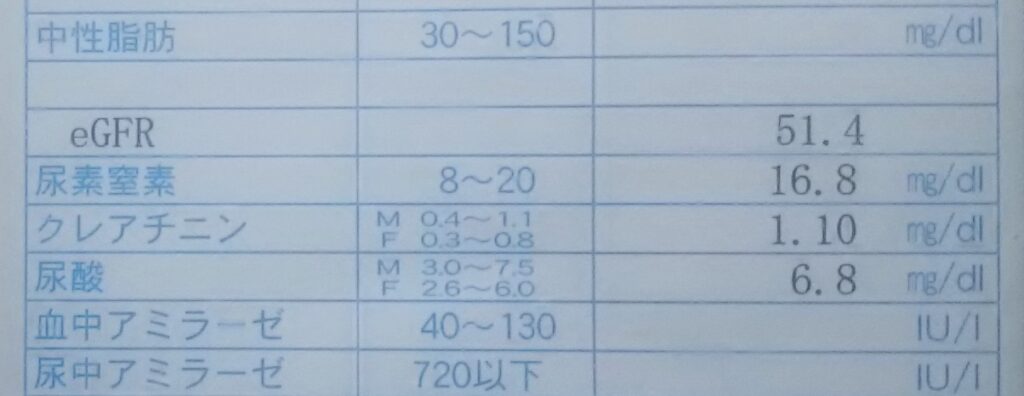 中性脂肪 30～150 mg/dl
eGFR 51.4
尿素窒素 8～20 16.8 mg/dl
クレアチニン M 0.4～1.1 F 0.3～0.8 1.10 mg/dl
尿酸 M 3.0～7.5 F 2.6～6.0 6.8 mg/dl
血中アミラーゼ 40～130 IU/l
尿中アミラーゼ 720以下 IU/l